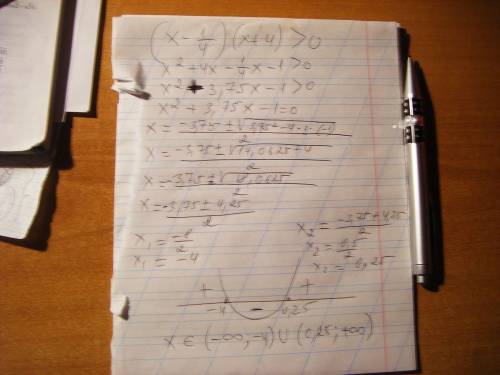 (x - 1/4)(x+4) > 0
x² + 4x - 1/4x - 1 > 0
x² + 3,75x - 1 > 0
x² + 3,75x - 1 = 0
x = (-3,75 ± √(3,75² - 4·1·(-1)))/2
x = (-3,75 ± √(14,0625+4))/2
x = (-3,75 ± √(18,0625))/2
x = (-3,75 ± 4,25)/2
x₁ = -8/2
x₁ = -4
x₂ = (-3,75 + 4,25)/2
x₂ = 0,5/2
x₂ = 0,25
+ - +
-4 0,25
x ∈ (-∞; -4) ∪ (0,25; +∞)